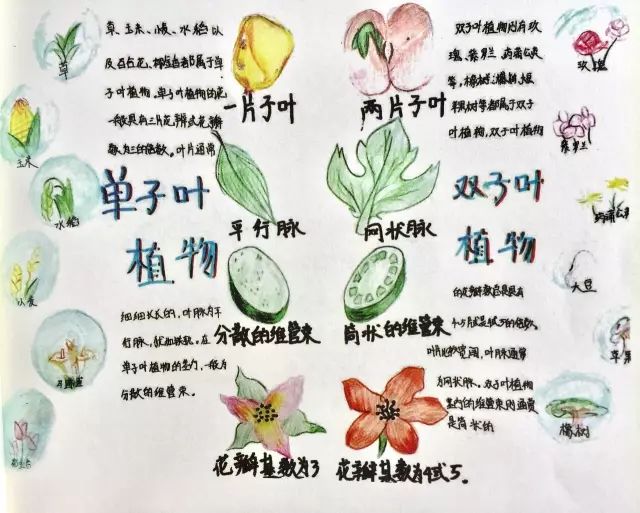 草、玉米、小麦、水稻以
及百合花、椰枣都属于单
子叶植物，单子叶植物的花
一般具有三片花瓣或花瓣
数为三的倍数。叶片通常
单子叶
植物
细细长长的，叶脉为平
行脉，
单子叶植物的茎内，一般为
分散的维管束。
草
玉米
水稻
小麦
一片子叶
平行脉
分散的维管束
花瓣基数为3
两片子叶
网状脉
筒状的维管束
花瓣基数为4或5。
双子叶植物则有玫
瑰、紫罗兰、蒲公英
等，橡树
树等都属于双子
叶植物，双子叶植物
双子叶
植物
的花瓣数总是具有
4、5片或是4或5的倍数。
叶片比较宽阔，叶脉通常
为网状脉。双子叶植物
茎内的维管束则通常
是筒状的
玫瑰
紫罗兰
蒲公英
大豆
苹果
橡树